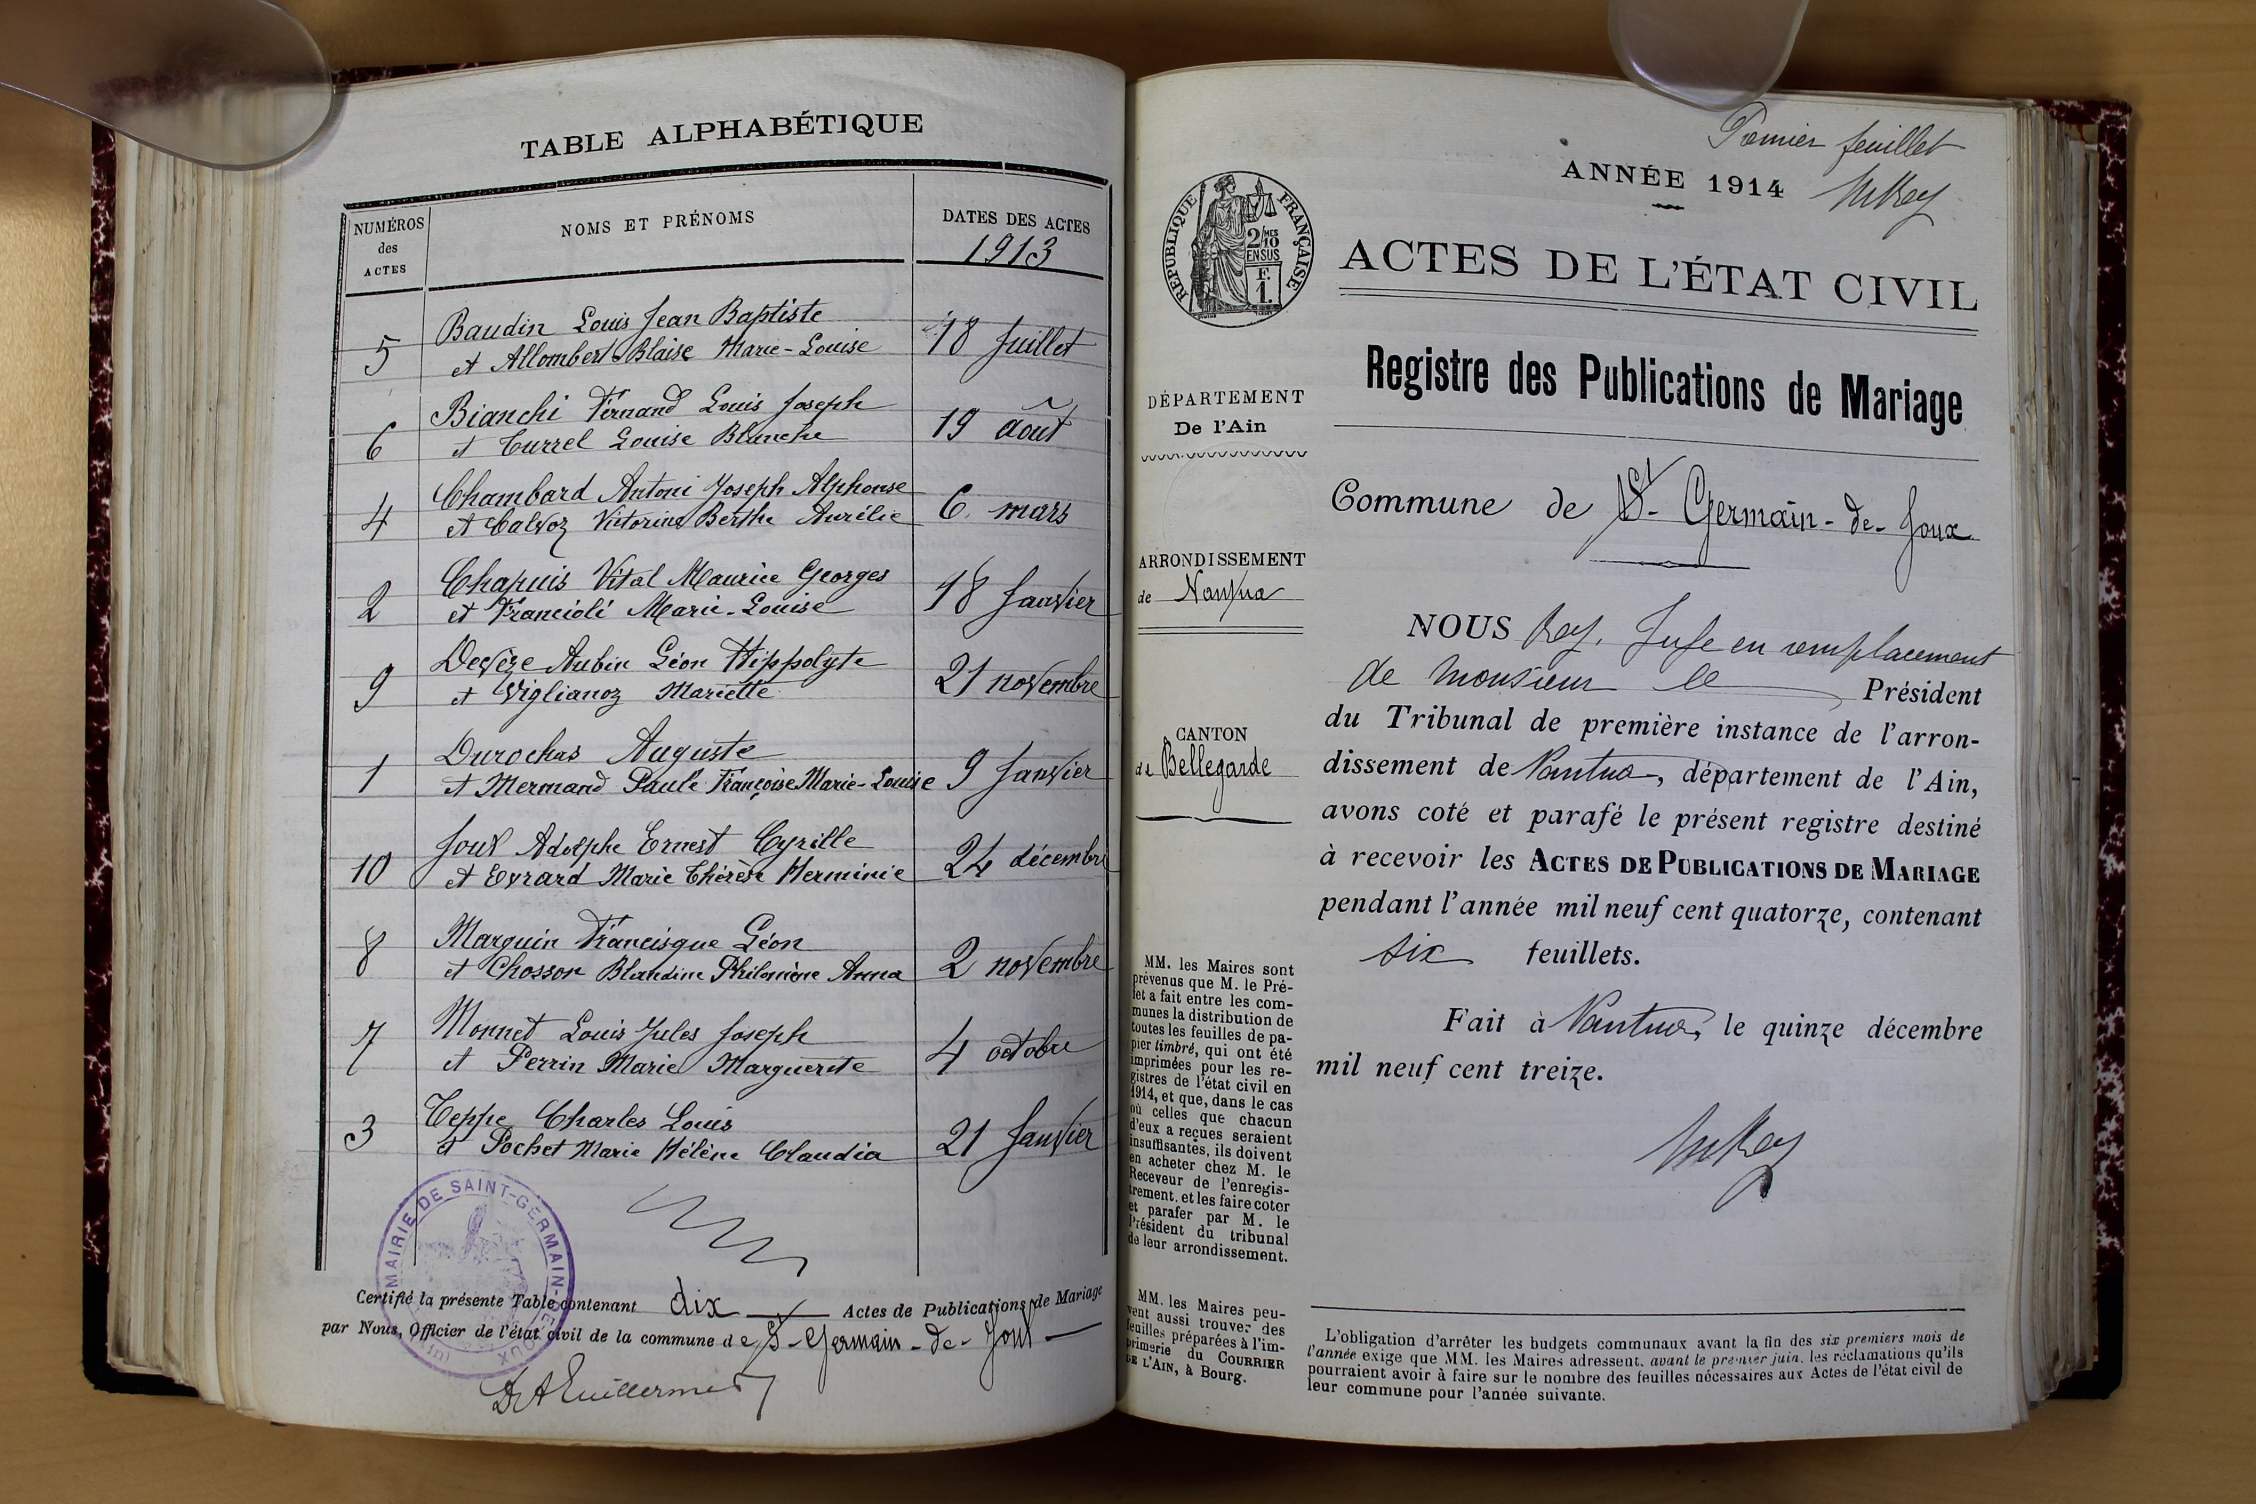 TABLE ALPHABÉTIQUE
NUMÉROS
des
ACTES
NOMS ET PRÉNOMS
DATES DES ACTES
1913
5 Baudin Louis Jean Baptiste
et Allombert-Blaise Marie-Louise 18 Juillet
6 Bianchi Fernand Louis Joseph
et Currel Louise Blanche 19 août
4 Chambard Antoni Joseph Alphonse
et Calvoz Victorine Berthe Aurélie 6 mars
2 Chapuis Vital Maurice Georges
et Francioli Marie-Louise 18 Janvier
9 Devèze Aubin Léon Hippolyte
et Viglianoz Mariette 21 novembre
1 Durochas Auguste
et Mermand Paule Françoise Marie-Louise 9 Janvier
10 Joux Adolphe Ernest Cyrille
et Evrard Marie Thérèse Herminie 24 décembre
8 Marquin Francisque Léon
et Chosson Blandine Philomène Anna 2 novembre
7 Monnet Louis Jules Joseph
et Perrin Marie Marguerite 4 octobre
3 Teppe Charles Louis
et Pochet Marie Hélène Claudia 21 Janvier
MAIRIE DE SAINT-GERMAIN-DE-JOUX
Certifié la présente Table contenant dix Actes de Publications de Mariage
par Nous, Officier de l'état civil de la commune de St-Germain-de-Joux
Premier feuillet
ANNÉE 1914
RÉPUBLIQUE FRANÇAISE
2/10
MES
EN SUS
F.
1.
ACTES DE L'ÉTAT CIVIL
Registre des Publications de Mariage
DÉPARTEMENT
De l'Ain
Commune de St-Germain-de-Joux
ARRONDISSEMENT
de Nantua
CANTON
de Bellegarde
NOUS Rey, Juge en remplacement
de Monsieur le Président
du Tribunal de première instance de l'arron-
dissement de Nantua, département de l'Ain,
avons coté et parafé le présent registre destiné
à recevoir les ACTES DE PUBLICATIONS DE MARIAGE
pendant l'année mil neuf cent quatorze, contenant
six feuillets.
Fait à Nantua, le quinze décembre
mil neuf cent treize.
MM. les Maires sont
prévenus que M. le Pré-
fet a fait entre les com-
munes la distribution de
toutes les feuilles de pa-
pier timbré, qui ont été
imprimées pour les re-
gistres de l'état civil en
1914, et que, dans le cas
où celles que chacun
d'eux a reçues seraient
insuffisantes, ils doivent
en acheter chez M. le
Receveur de l'enregis-
trement. et les faire coter
et parafer par M. le
Président du tribunal
de leur arrondissement.
MM. les Maires peu-
vent aussi trouver des
feuilles préparées à l'im-
primerie du COURRIER
DE L'AIN, à Bourg.
L'obligation d'arrêter les budgets communaux avant la fin des six premiers mois de
l'année exige que MM. les Maires adressent, avant le premier juin, les réclamations qu'ils
pourraient avoir à faire sur le nombre des feuilles nécessaires aux Actes de l'état civil de
leur commune pour l'année suivante.